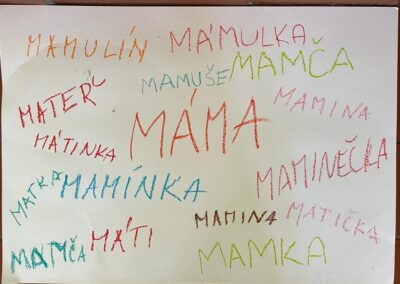 MAMULÍN
MÁMULKA
MAMUŠE
MAMČA
MATEŘ
MAMINA
MÁMA
MÁTINKA
MAMINEČKA
MATKA
MAMÍNKA
MAMINA
MATIČKA
MAMČA
MÁTI
MAMKA